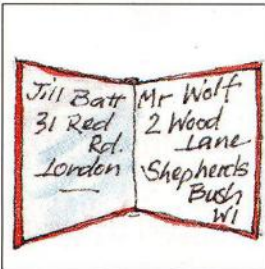 Jill Batt
31 Red
Rd.
London
Mr Wolf
2 Wood
Lane
Shepherds
Bush
W1